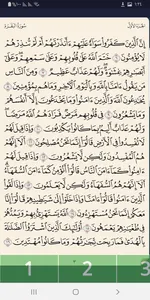 1:15
الجزء الأول
سورة البقرة
إِنَّ ٱلَّذِينَ كَفَرُوا۟ سَوَآءٌ عَلَيْهِمْ ءَأَنذَرْتَهُمْ أَمْ لَمْ تُنذِرْهُمْ
لَا يُؤْمِنُونَ ٦ خَتَمَ ٱللَّهُ عَلَىٰ قُلُوبِهِمْ وَعَلَىٰ سَمْعِهِمْ وَعَلَىٰٓ
أَبْصَٰرِهِمْ غِشَٰوَةٌ وَلَهُمْ عَذَابٌ عَظِيمٌ ٧ وَمِنَ ٱلنَّاسِ
مَن يَقُولُ ءَامَنَّا بِٱللَّهِ وَبِٱلْيَوْمِ ٱلْءَاخِرِ وَمَا هُم بِمُؤْمِنِينَ ٨
يُخَٰدِعُونَ ٱللَّهَ وَٱلَّذِينَ ءَامَنُوا۟ وَمَا يَخْدَعُونَ إِلَّآ أَنفُسَهُمْ
وَمَا يَشْعُرُونَ ٩ فِى قُلُوبِهِم مَّرَضٌ فَزَادَهُمُ ٱللَّهُ مَرَضًا
وَلَهُمْ عَذَابٌ أَلِيمٌۢ بِمَا كَانُوا۟ يَكْذِبُونَ ١٠ وَإِذَا قِيلَ لَهُمْ
لَا تُفْسِدُوا۟ فِى ٱلْأَرْضِ قَالُوٓا۟ إِنَّمَا نَحْنُ مُصْلِحُونَ ١١
أَلَآ إِنَّهُمْ هُمُ ٱلْمُفْسِدُونَ وَلَٰكِن لَّا يَشْعُرُونَ ١٢ وَإِذَا قِيلَ لَهُمْ
ءَامِنُوا۟ كَمَآ ءَامَنَ ٱلنَّاسُ قَالُوٓا۟ أَنُؤْمِنُ كَمَآ ءَامَنَ ٱلسُّفَهَآءُ
أَلَآ إِنَّهُمْ هُمُ ٱلسُّفَهَآءُ وَلَٰكِن لَّا يَعْلَمُونَ ١٣ وَإِذَا لَقُوا۟
ٱلَّذِينَ ءَامَنُوا۟ قَالُوٓا۟ ءَامَنَّا وَإِذَا خَلَوْا۟ إِلَىٰ شَيَٰطِينِهِمْ قَالُوٓا۟ إِنَّا
مَعَكُمْ إِنَّمَا نَحْنُ مُسْتَهْزِءُونَ ١٤ ٱللَّهُ يَسْتَهْزِئُ بِهِمْ وَيَمُدُّهُمْ
فِى طُغْيَٰنِهِمْ يَعْمَهُونَ ١٥ أُو۟لَٰٓئِكَ ٱلَّذِينَ ٱشْتَرَوُا۟ ٱلضَّلَٰلَةَ
بِٱلْهُدَىٰ فَمَا رَبِحَت تِّجَٰرَتُهُمْ وَمَا كَانُوا۟ مُهْتَدِينَ ١٦
1 2 3